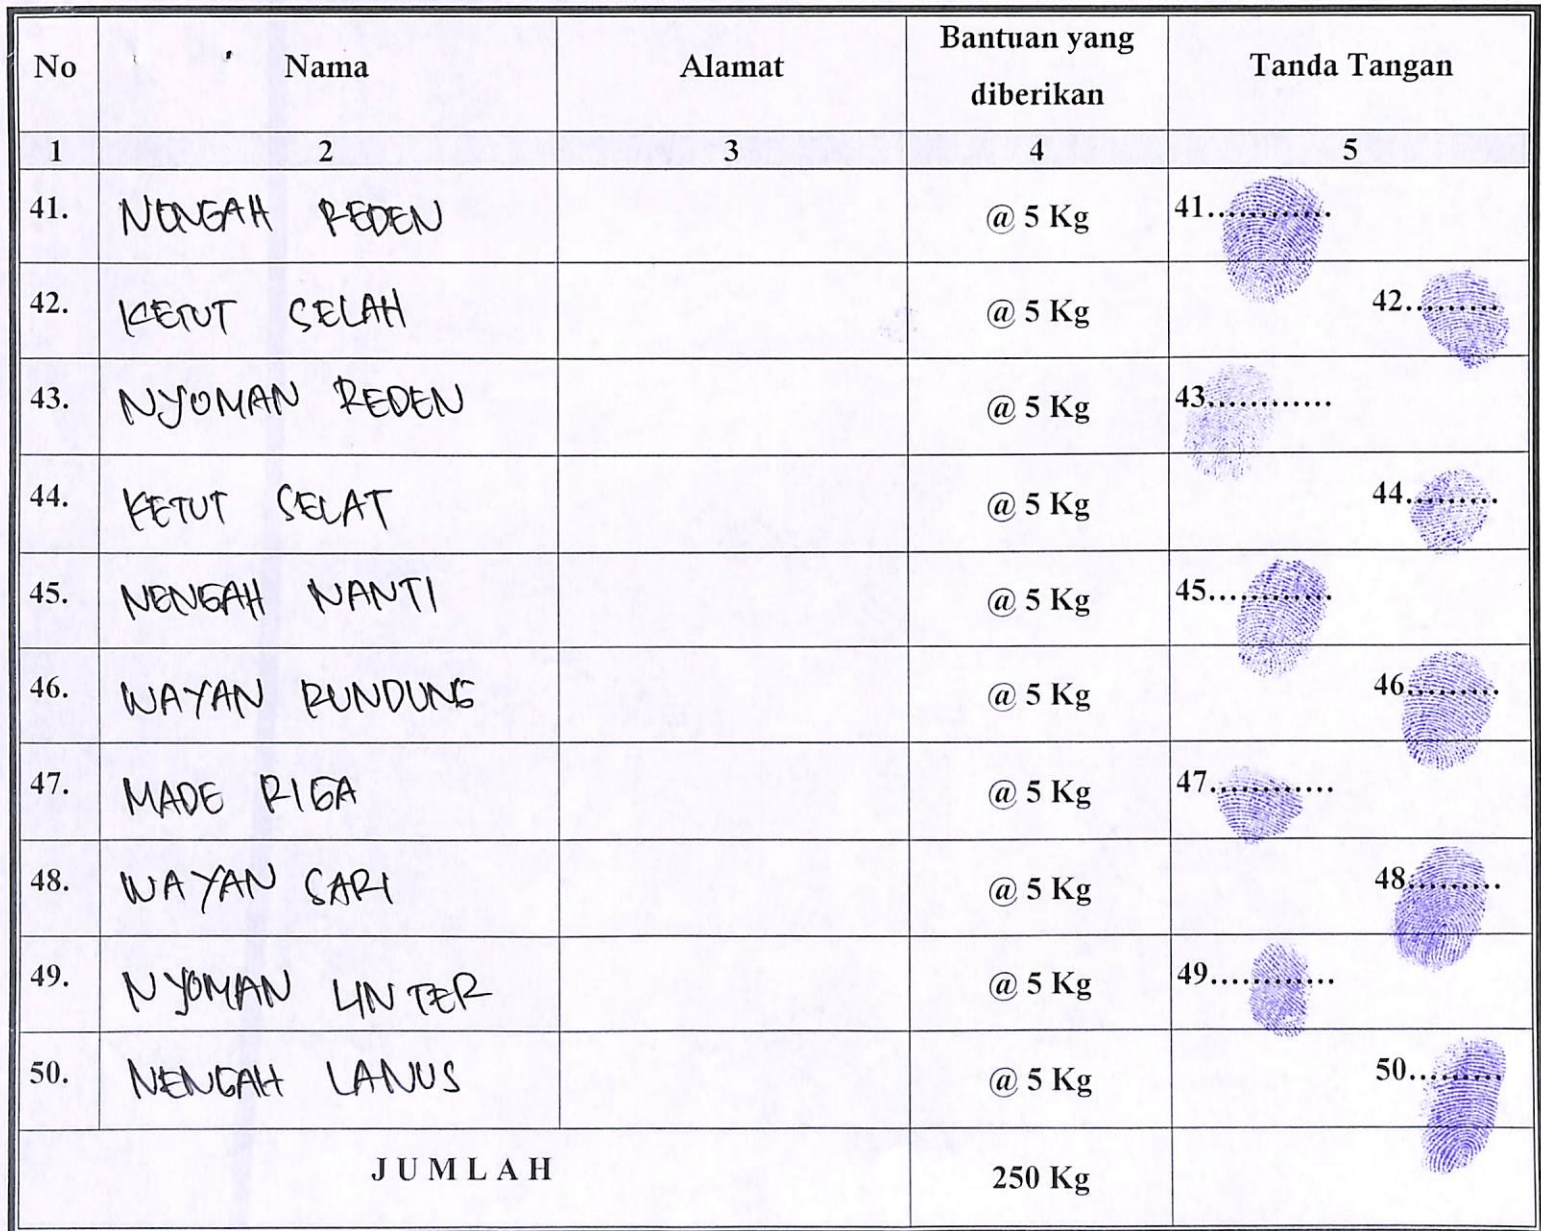 No Nama Alamat Bantuan yang diberikan Tanda Tangan
1 2 3 4 5
41. NENGAH REDEN @ 5 Kg 41............
42. KETUT SELAH @ 5 Kg 42.........
43. NYOMAN REDEN @ 5 Kg 43............
44. KETUT SELAT @ 5 Kg 44.........
45. NENGAH NANTI @ 5 Kg 45............
46. WAYAN RUNDUNG @ 5 Kg 46.........
47. MADE RIGA @ 5 Kg 47............
48. WAYAN SARI @ 5 Kg 48.........
49. NYOMAN LINTER @ 5 Kg 49............
50. NENGAH LANUS @ 5 Kg 50.........
JUMLAH 250 Kg